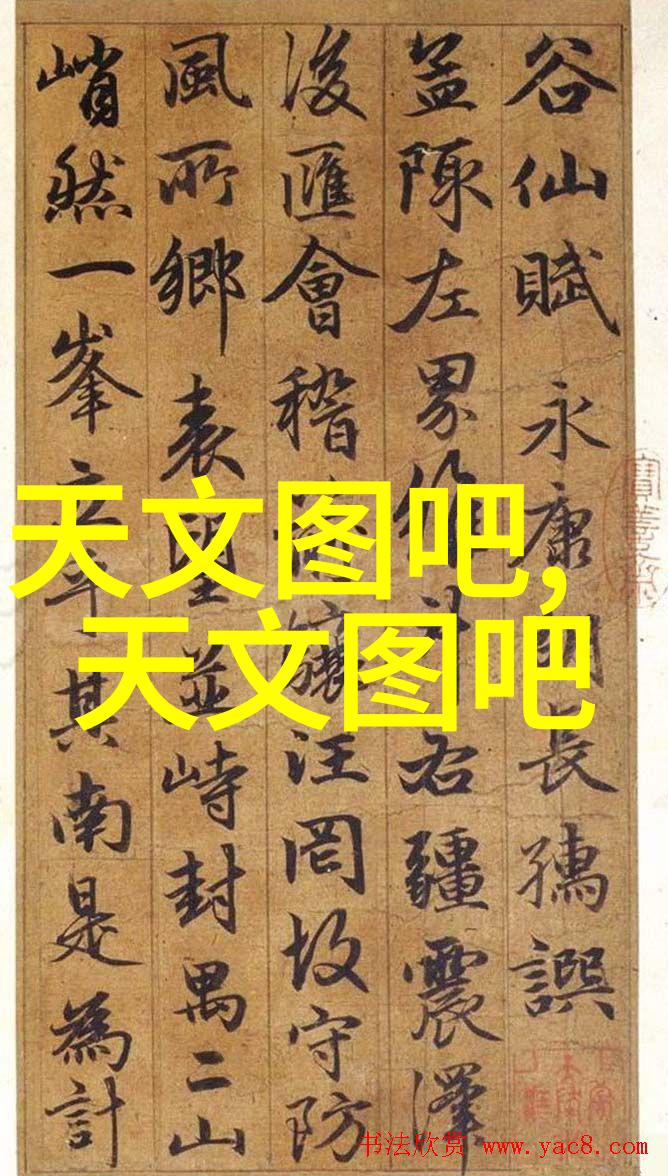 谷仙賦 永康長孺譔
盖陳左界右疆震澤
後匯會稽汪罔故守防
風所鄉表望並峙封禺二山
峭然一峯立其南是為計
天文图吧,
天文图吧
书法欣赏 www.yac8.com